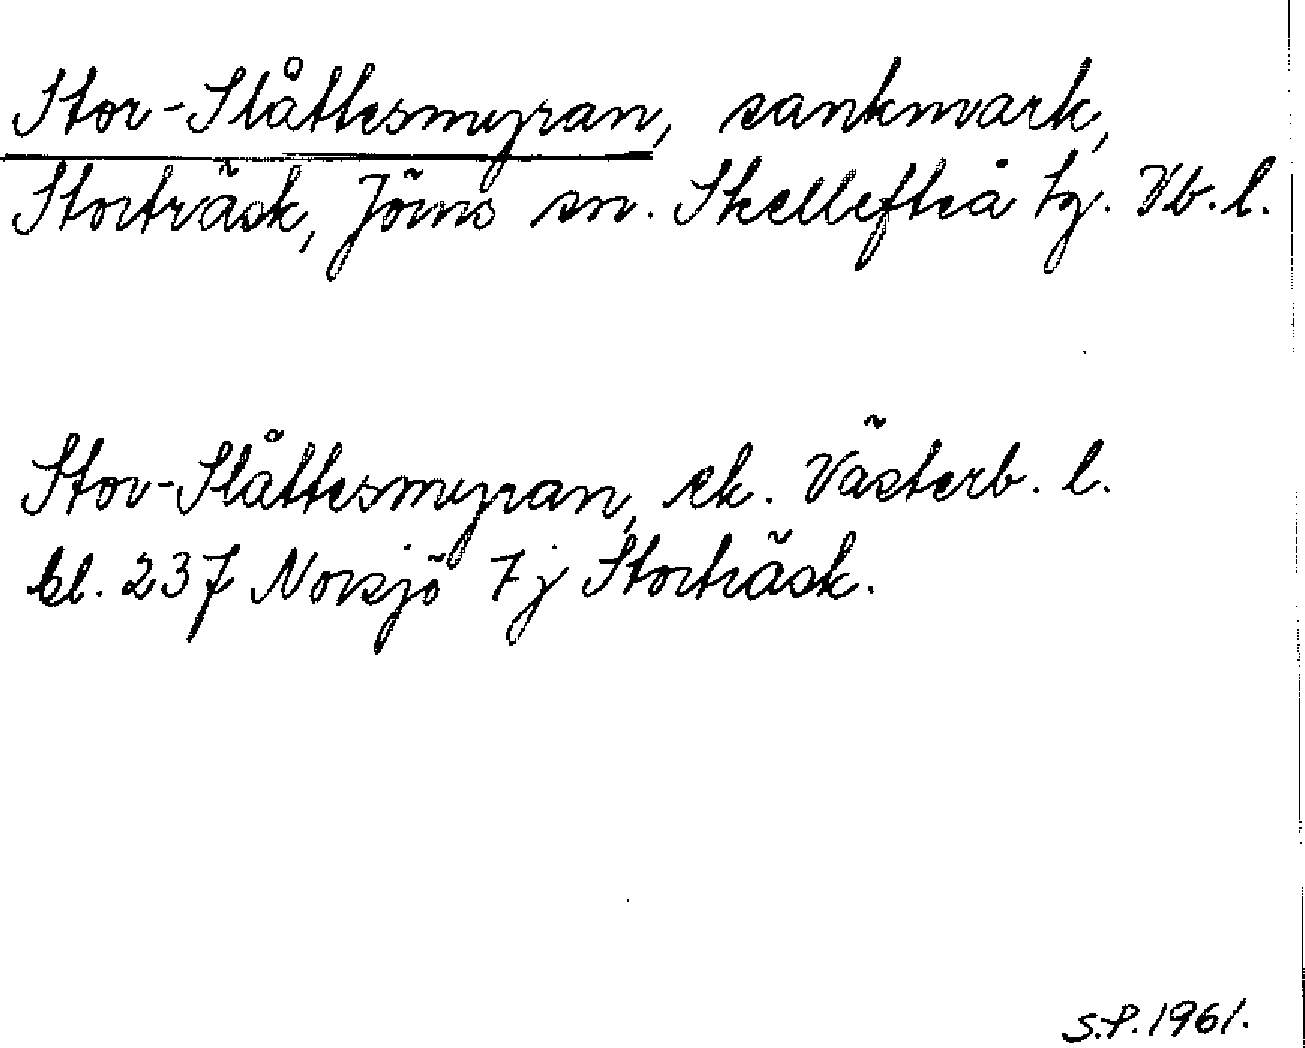 Stor-Slåttesmyran, sankmark,
Storträsk, Jörns sn. Skellefteå tg. Vb. l.
Stor-Slåttesmyran, ek. Västerb. l.
bl. 237 Norsjö 7j Storträsk.
S.P. 1961.